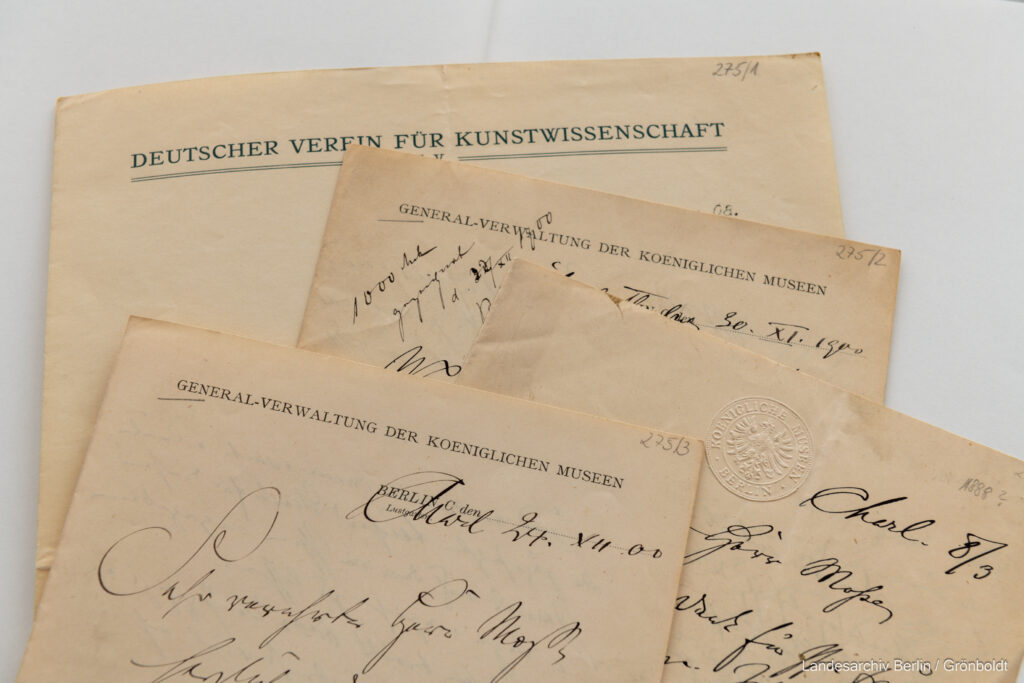 275/1
DEUTSCHER VEREIN FÜR KUNSTWISSENSCHAFT
08.
GENERAL-VERWALTUNG DER KOENIGLICHEN MUSEEN
275/2
1000 Mk
30. XI. 1900
GENERAL-VERWALTUNG DER KOENIGLICHEN MUSEEN
275/3
BERLIN C den
24. XII 00
Sehr verehrter Herr Mosse
KOENIGLICHE MUSEEN
BERLIN
1888?
Charl. 8/3
Herr Mosse
für
Landesarchiv Berlin / Grönboldt